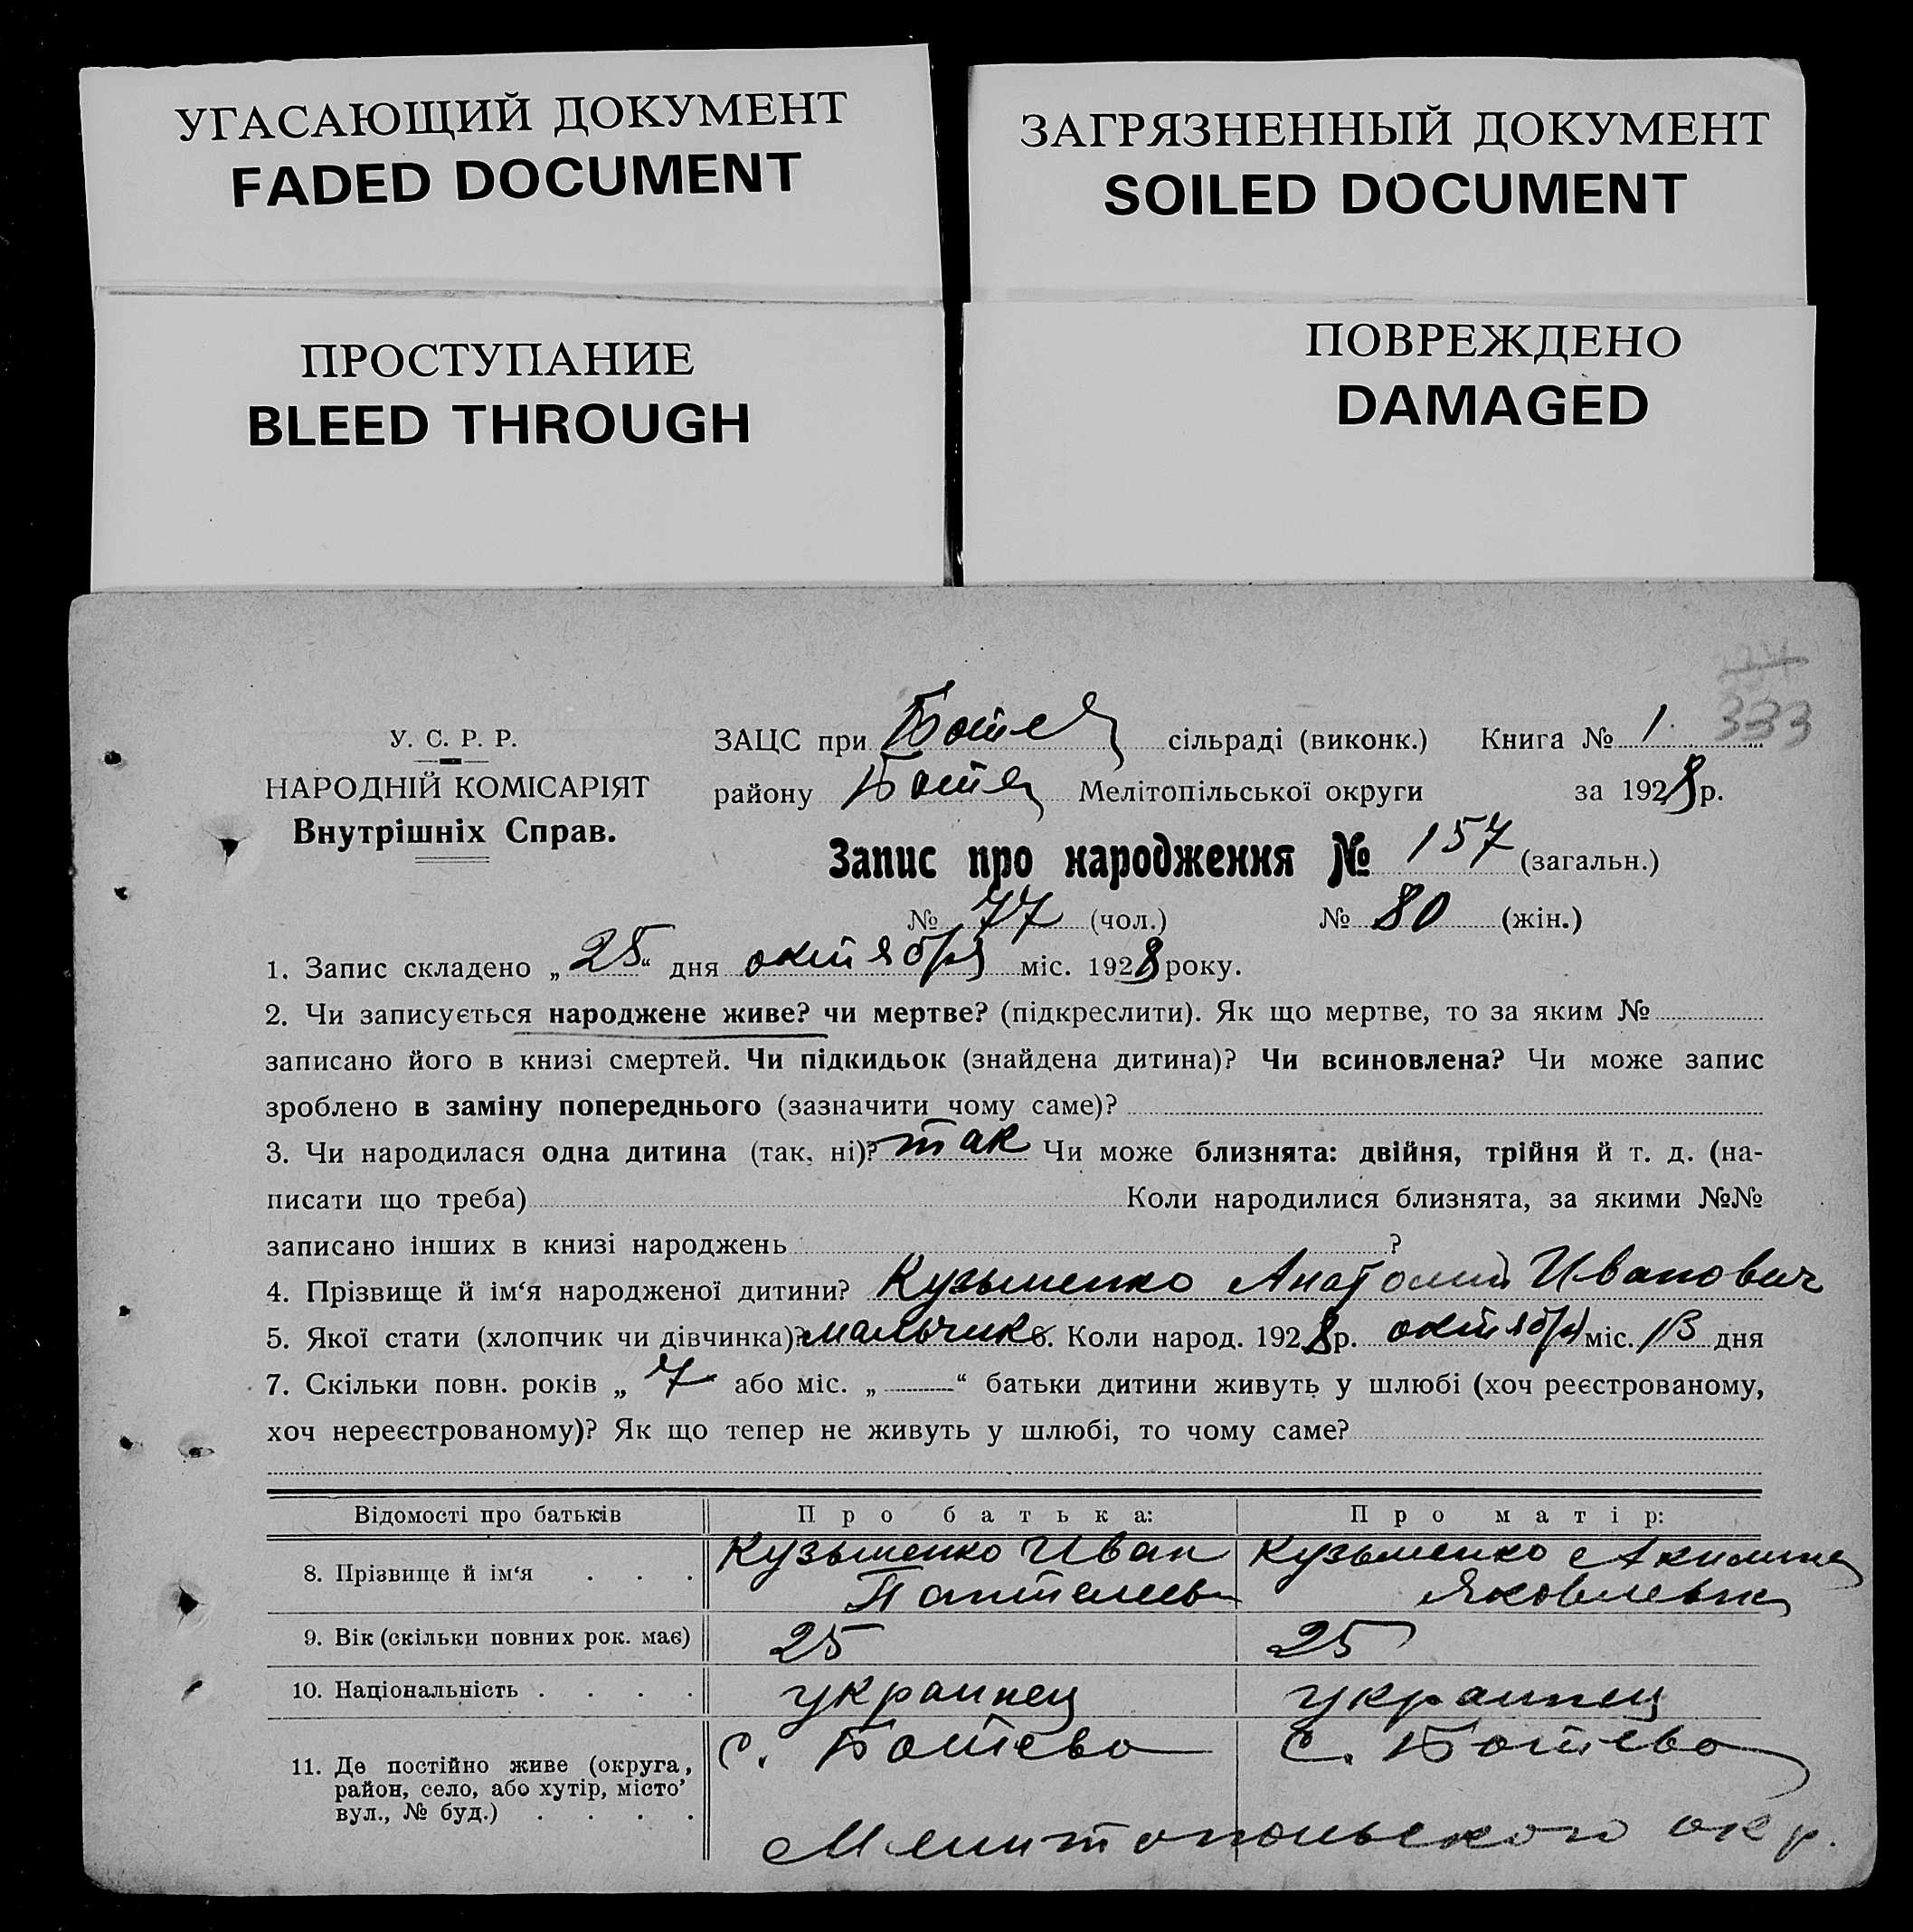 УГАСАЮЩИЙ ДОКУМЕНТ
FADED DOCUMENT
ЗАГРЯЗНЕННЫЙ ДОКУМЕНТ
SOILED DOCUMENT
ПРОСТУПАНИЕ
BLEED THROUGH
ПОВРЕЖДЕНО
DAMAGED
333
У. С. Р. Р.
НАРОДНІЙ КОМІСАРІЯТ
Внутрішніх Справ.
ЗАЦС при Ботев сільраді (виконк.) Книга № 1
району Ботев Мелітопільської округи за 1928 р.
Запис про народження № 157 (загальн.)
№ 77 (чол.) № 80 (жін.)
1. Запис складено „25“ дня октября міс. 1928 року.
2. Чи записується народжене живе? чи мертве? (підкреслити). Як що мертве, то за яким №
записано його в книзі смертей. Чи підкидьок (знайдена дитина)? Чи всиновлена? Чи може запис
зроблено в заміну попереднього (зазначити чому саме)?
3. Чи народилася одна дитина (так, ні)? так Чи може близнята: двійня, трійня й т. д. (на-
писати що треба) Коли народилися близнята, за якими №№
записано інших в книзі народжень ?
4. Прізвище й ім‘я народженої дитини? Кузьменко Анатолий Иванович
5. Якої стати (хлопчик чи дівчинка)? мальчик 6. Коли народ. 1928 р. октября міс. 13 дня
7. Скільки повн. років „7“ або міс. „—“ батьки дитини живуть у шлюбі (хоч реєстрованому,
хоч нереєстрованому)? Як що тепер не живуть у шлюбі, то чому саме?
Відомості про батьків Про батька: Про матір:
8. Прізвище й ім‘я . . . Кузьменко Иван Кузьменко Акилина
Пантелеев Яковлевна
9. Вік (скільки повних рок. має) 25 25
10. Національність . . . . украинец украинец
11. Де постійно живе (округа, с. Ботево с. Ботево
район, село, або хутір, місто’
вул., № буд.) . . . .
Мелитопольского окр.